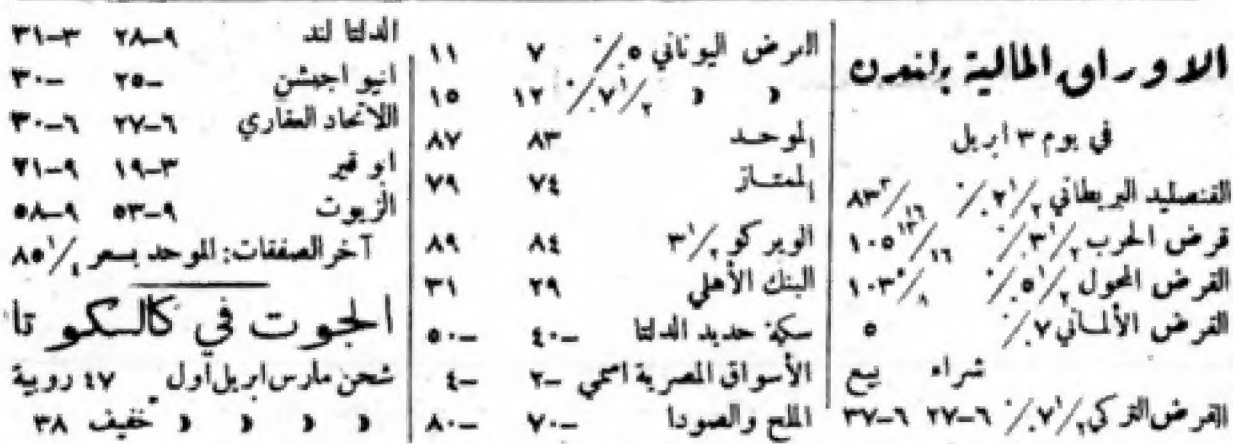 الاوراق المالية بلندن
في يوم ٣ ابريل
القنصليد البريطاني ٢ ١/٢ ٪ ٨٣ ٣/١٦
قرض الحرب ٣ ١/٢ ٪ ١٠٥ ١٣/١٦
القرض المحول ٥ ١/٢ ٪ ١٠٣ ٥/٨
القرض الألماني ٧ ٪ ٥
شراء بيع
القرض التركي ٧ ١/٢ ٪ ٦–٢٧ ٦–٣٧
القرض اليوناني ٥ ٪ ٧ ١١
» » ٧ ١/٢ ٪ ١٢ ١٥
الموحد ٨٣ ٨٧
الممتاز ٧٤ ٧٩
الويركو ٣ ١/٢ ٨٤ ٨٩
البنك الأهلي ٢٩ ٣١
سكة حديد الدلتا –٤٠ –٥٠
الأسواق المصرية اسمي –٢ –٤
الملح والصودا –٧٠ –٨٠
الدلتا لند ٩–٢٨ ٣–٣١
انيو اجبشن –٢٥ –٣٠
اللاتحاد العقاري ٦–٢٧ ٦–٣٠
ابو قير ٣–١٩ ٩–٢١
الزيوت ٩–٥٣ ٩–٥٨
آخر الصفقات: الموحد بسعر ٨٥ ١/٤
الجوت في كالكوتا
شحن مارس ابريل اول ٤٧ روبية
» » » » خفيف ٣٨